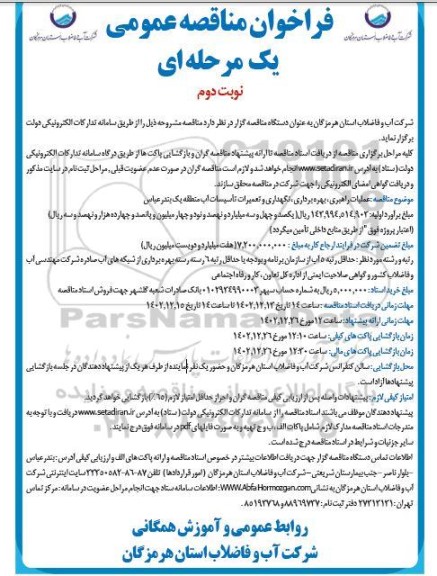 فراخوان مناقصه عمومی
یک مرحله ای
نوبت دوم
شرکت آب و فاضلاب استان هرمزگان
شرکت آب و فاضلاب استان هرمزگان
شرکت آب و فاضلاب استان هرمزگان به عنوان دستگاه مناقصه گزار در نظر دارد مناقصه مشروحه ذیل را از طریق سامانه تدارکات الکترونیکی دولت
برگزار نماید.
کلیه مراحل برگزاری مناقصه از دریافت اسناد مناقصه تا ارائه پیشنهاد مناقصه گران و بازگشایی پاکت ها از طریق درگاه سامانه تدارکات الکترونیکی
دولت (ستاد) به آدرس www.setadiran.ir انجام خواهد شد و لازم است مناقصه گران در صورت عدم عضویت قبلی، مراحل ثبت نام در سایت مذکور
و دریافت گواهی امضای الکترونیکی را جهت شرکت در مناقصه محقق سازند.
موضوع مناقصه: عملیات راهبری، بهره برداری، نگهداری و تعمیرات تأسیسات آب منطقه یک بندرعباس
مبلغ برآورد اولیه: ۱۴۲,۹۹۴,۵۱۴,۹۰۲ ریال (یکصد و چهل و سه میلیارد و نهصد و نود و چهار میلیون و پانصد و چهارده هزار و نهصد و سه ریال)
(اعتبار پروژه فوق "از طریق منابع داخلی تأمین میگردد)
مبلغ تضمین شرکت در فرایند ارجاع کار به مبلغ: ۷,۲۰۰,۰۰۰,۰۰۰ (هفت میلیارد و دویست میلیون ریال)
رتبه و رشته مورد نظر: حداقل رتبه ۵ آب از سازمان برنامه و بودجه یا حداقل رتبه ۶ رسته بهره برداری از شبکه های آب صادره شرکت مهندسی آب
و فاضلاب کشور و گواهی صلاحیت ایمنی از اداره کل تعاون، کار و رفاه اجتماعی
مبلغ خرید اسناد: ۵,۰۰۰,۰۰۰ ریال به شماره حساب سپهر ۰۱۰۲۹۳۴۹۹۰۰۰۳ بانک صادرات شعبه گلشهر جهت فروش اسناد مناقصه
مهلت زمانی دریافت اسناد مناقصه: ساعت ۱۴ تاریخ ۱۴۰۲,۱۲,۱۳ تا ساعت ۱۴ تاریخ ۱۴۰۲,۱۲,۱۵
مهلت زمانی ارائه پیشنهاد: ساعت ۱۲ مورخ ۱۴۰۲,۱۲,۲۶
زمان بازگشایی پاکت های کیفی: ساعت ۱۲:۱۰ مورخ ۱۴۰۲,۱۲,۲۶
زمان بازگشایی پاکت های مالی: ساعت ۱۲:۳۰ مورخ ۱۴۰۲,۱۲,۲۶
محل بازگشایی: سالن کنفرانس شرکت آب و فاضلاب استان هرمزگان و حضور یک نفر نماینده از طرف هر یک از پیشنهاددهندگان در جلسه بازگشایی
پیشنهادها آزاد است.
امتیاز کیفی لازم: پیشنهادات واصله پس از ارزیابی کیفی مناقصه گران و احراز حداقل امتیاز لازم (٪۶۵) بازگشایی خواهد گردید
پیشنهاددهندگان موظف می باشند اسناد مناقصه را از سامانه تدارکات الکترونیکی دولت (ستاد) به آدرس www.setadiran.ir دریافت و با توجه به
مندرجات اسناد مناقصه مدارک لازم شامل پاکات الف، ب و ج تهیه و به صورت فایلهای pdf در سامانه فوق درج نمایند
سایر جزئیات و شرایط در اسناد مناقصه درج شده است.
اطلاعات تماس دستگاه مناقصه گزار جهت دریافت اطلاعات بیشتر در خصوص اسناد مناقصه و ارائه پاکت های الف و ارزیابی کیفی آدرس: بندرعباس
-بلوار ناصر - جنب بیمارستان شریعتی - شرکت آب و فاضلاب استان هرمزگان (امور قراردادها) تلفن ۸۷-۳۳۳۵۰۵۸۲-۰۸۶ سایت اینترنتی شرکت
آب و فاضلاب استان هرمزگان به نشانی www.AbfaHormozgan.com: اطلاعات سامانه ستاد جهت انجام مراحل عضویت در سامانه: مرکز تماس
تهران: ۲۷۳۱۳۱۳۱ دفتر ثبت نام: ۸۸۹۶۹۷۳۷ و ۸۵۱۹۳۷۶۸
روابط عمومی و آموزش همگانی
شرکت آب و فاضلاب استان هرمزگان